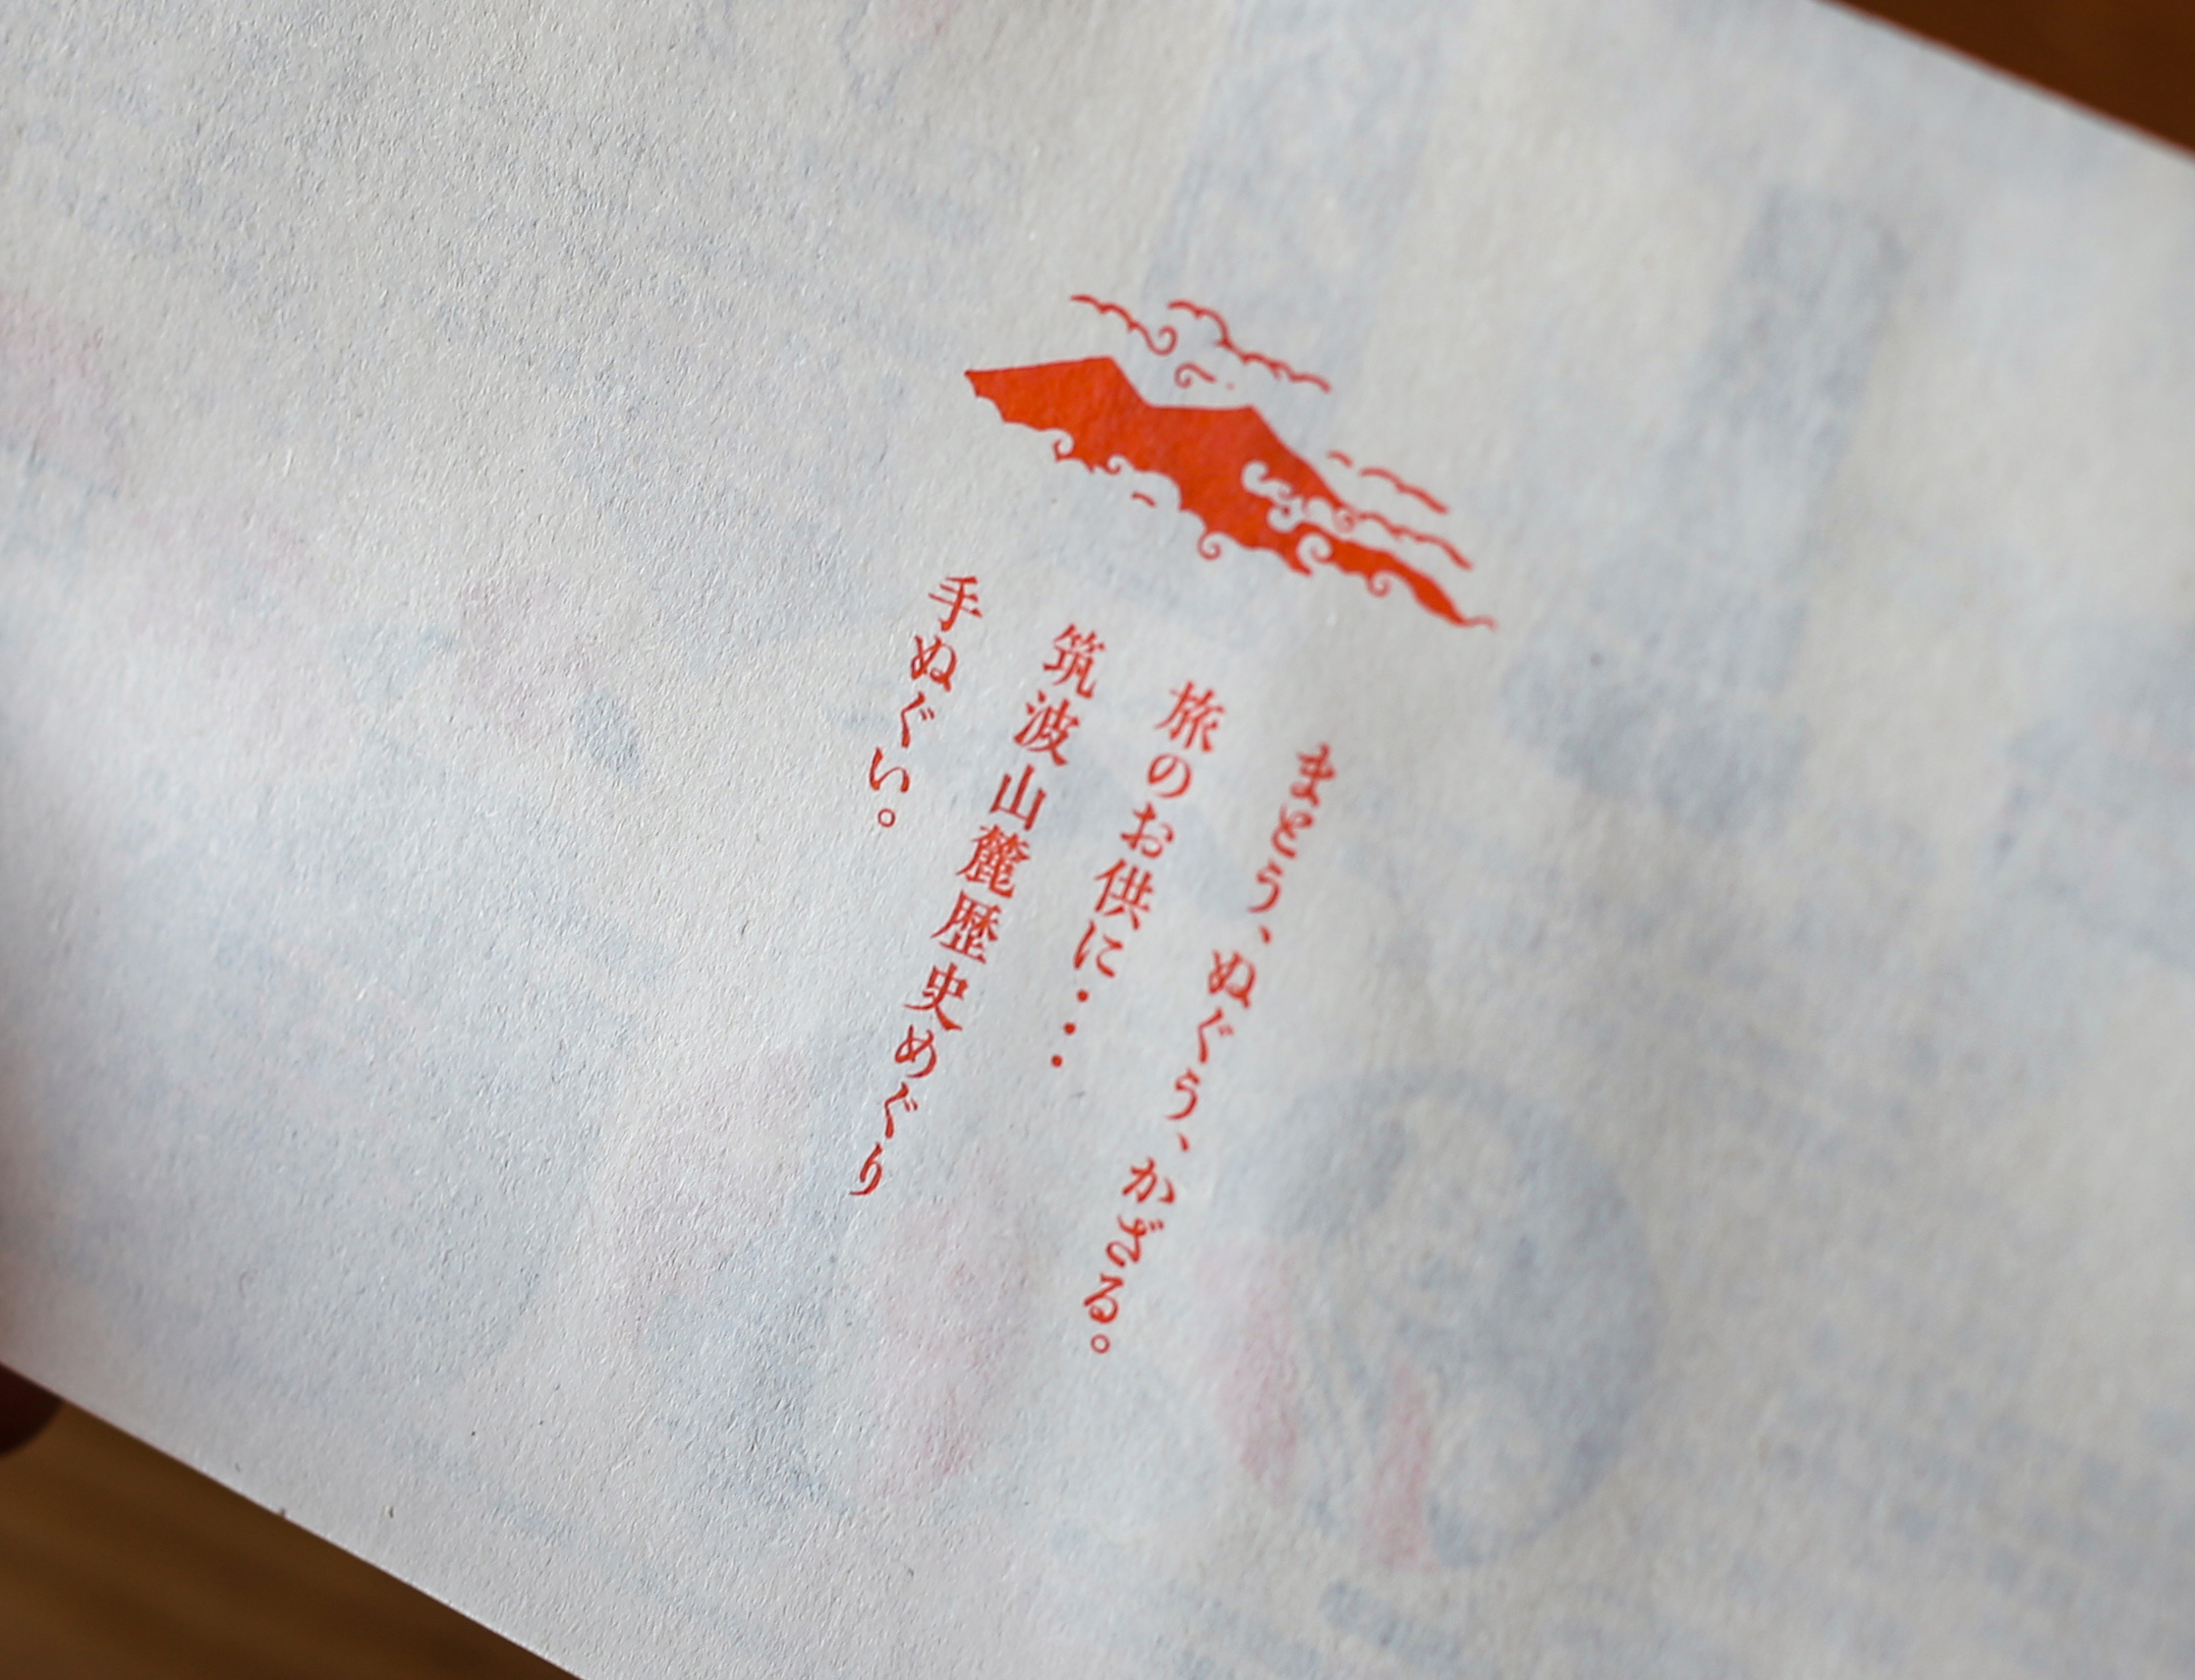 まとう、ぬぐう、かざる。
旅のお供に・・・
筑波山麓歴史めぐり
手ぬぐい。